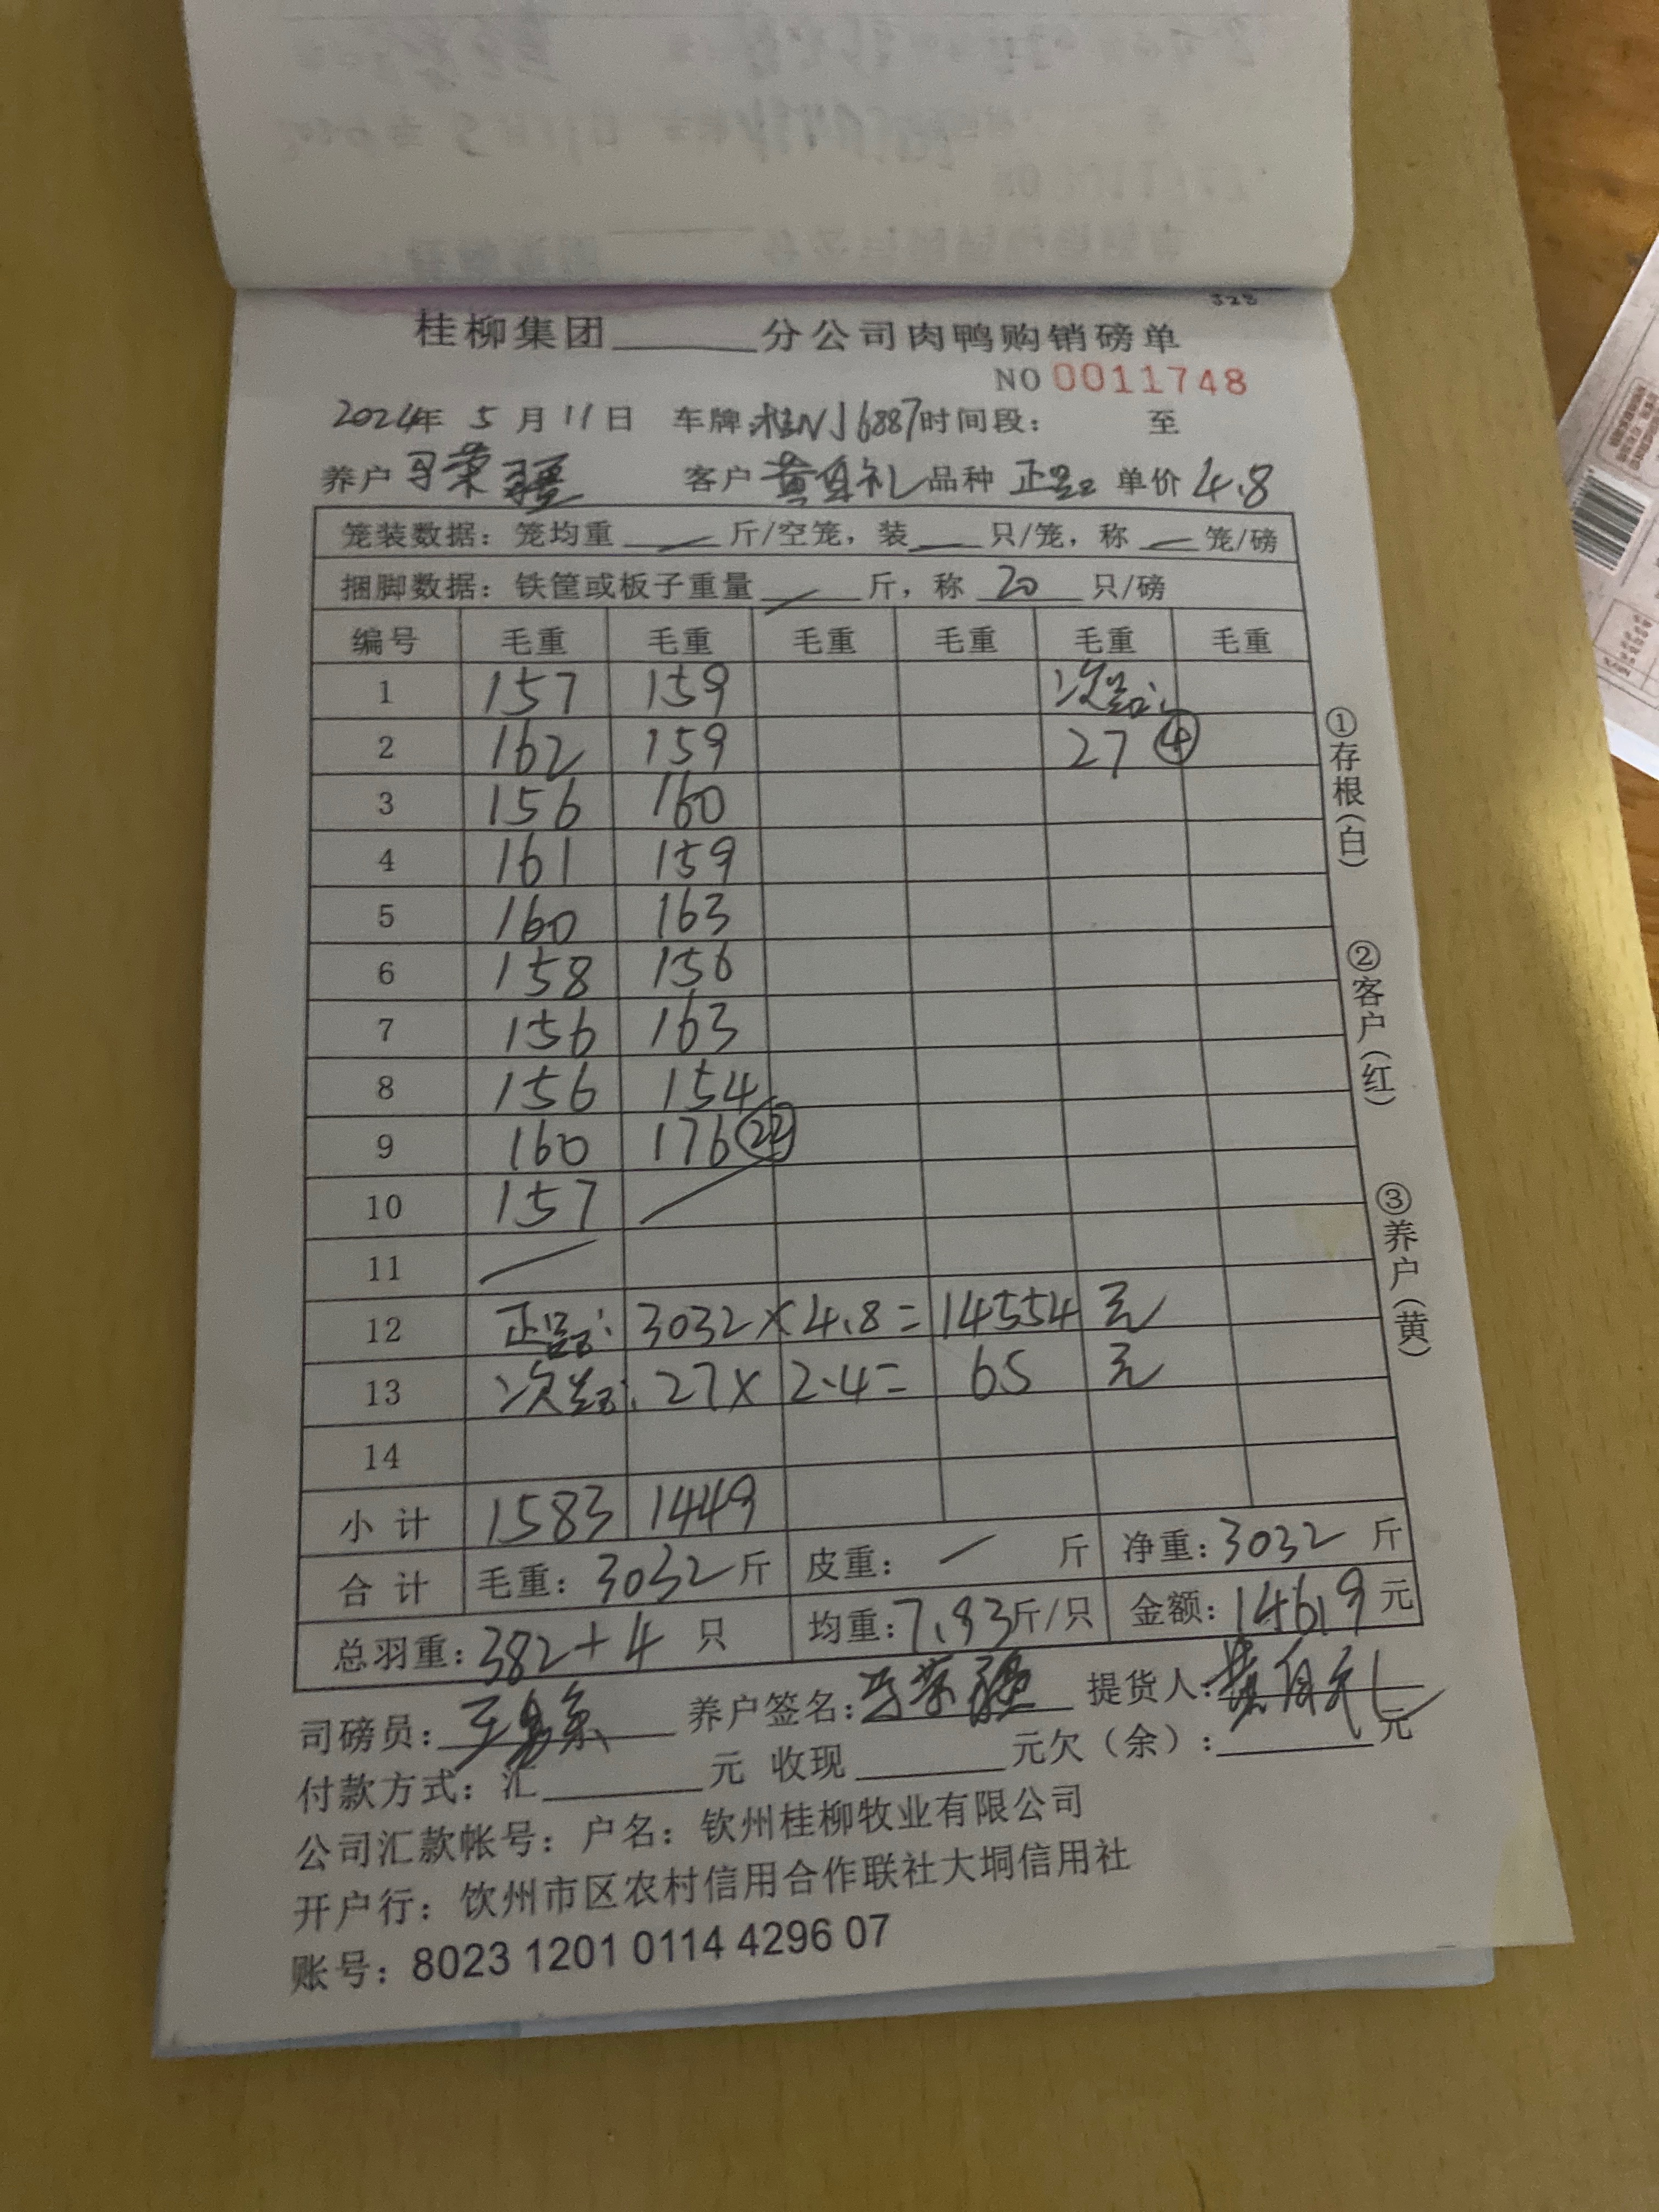 桂柳集团______分公司肉鸭购销磅单
NO 0011748
2024年 5 月 11 日 车牌:桂NJ6887 时间段: 至
养户 客户 黄自礼 品种 正品 单价 4.8
笼装数据：笼均重 — 斤/空笼，装 — 只/笼，称 — 笼/磅
捆脚数据：铁筐或板子重量 — 斤，称 20 只/磅
编号 毛重 毛重 毛重 毛重 毛重 毛重
1 157 159 次品:
2 162 159 27 ④
3 156 160
4 161 159
5 160 163
6 158 156
7 156 163
8 156 154
9 160 176 ㉒
10 157 /
11 /
12 正品: 3032 × 4.8 = 14554 元
13 次品: 27 × 2.4 = 65 元
14
小 计 1583 1449
合 计 毛重: 3032 斤 皮重: — 斤 净重: 3032 斤
总羽重: 382+4 只 均重: 7.93 斤/只 金额: 14619 元
司磅员: 养户签名: 提货人: 黄自礼
付款方式：汇______元 收现______元欠（余）:______元
公司汇款帐号：户名：钦州桂柳牧业有限公司
开户行：钦州市区农村信用合作联社大垌信用社
账号：8023 1201 0114 4296 07
①存根(白)
②客户(红)
③养户(黄)